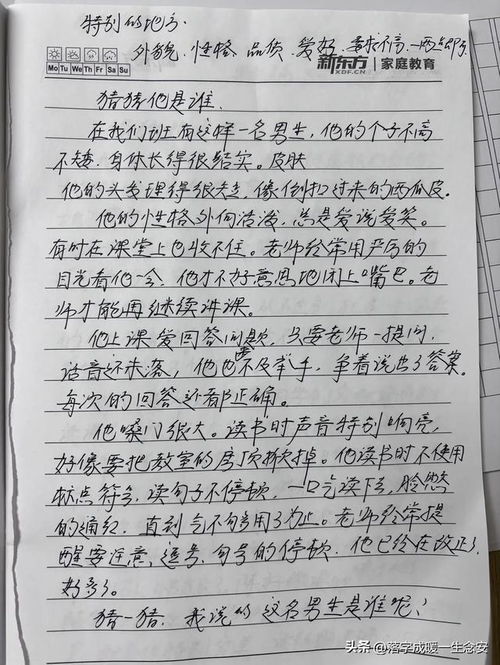 特别的地方.
外貌、性格、品质、爱好、要求不高、一两点即可
Mo Tu We Th Fr Sa Su
新东方 XDF.CN 家庭教育
猜猜他是谁.
在我们班有这样一名男生,他的个子不高
不矮,身体长得很结实。皮肤
他的头发理得很短,像倒扣过来的西瓜皮.
他的性格外向活泼,总是爱说爱笑。
有时在课堂上也收不住。老师经常用严厉的
目光看他一会,他才不好意思地闭上嘴巴。老
师才能再继续讲课。
他上课爱回答问题,只要老师一提问,
话音还未落,他也来不及举手,争着说出了答案.
每次的回答还都正确。
他嗓门很大。读书时声音特别响亮,
好像要把教室的房顶掀掉。他读书时不使用
标点符号,读句子不停顿,一口气读下去,脸憋
的通红,直到气不够用了为止。老师经常提
醒要注意,逗号、句号的停顿,他已经在改正了
好多了。
猜一猜,我说的这名男生是谁呢?
头条 @落字成暖一生念安